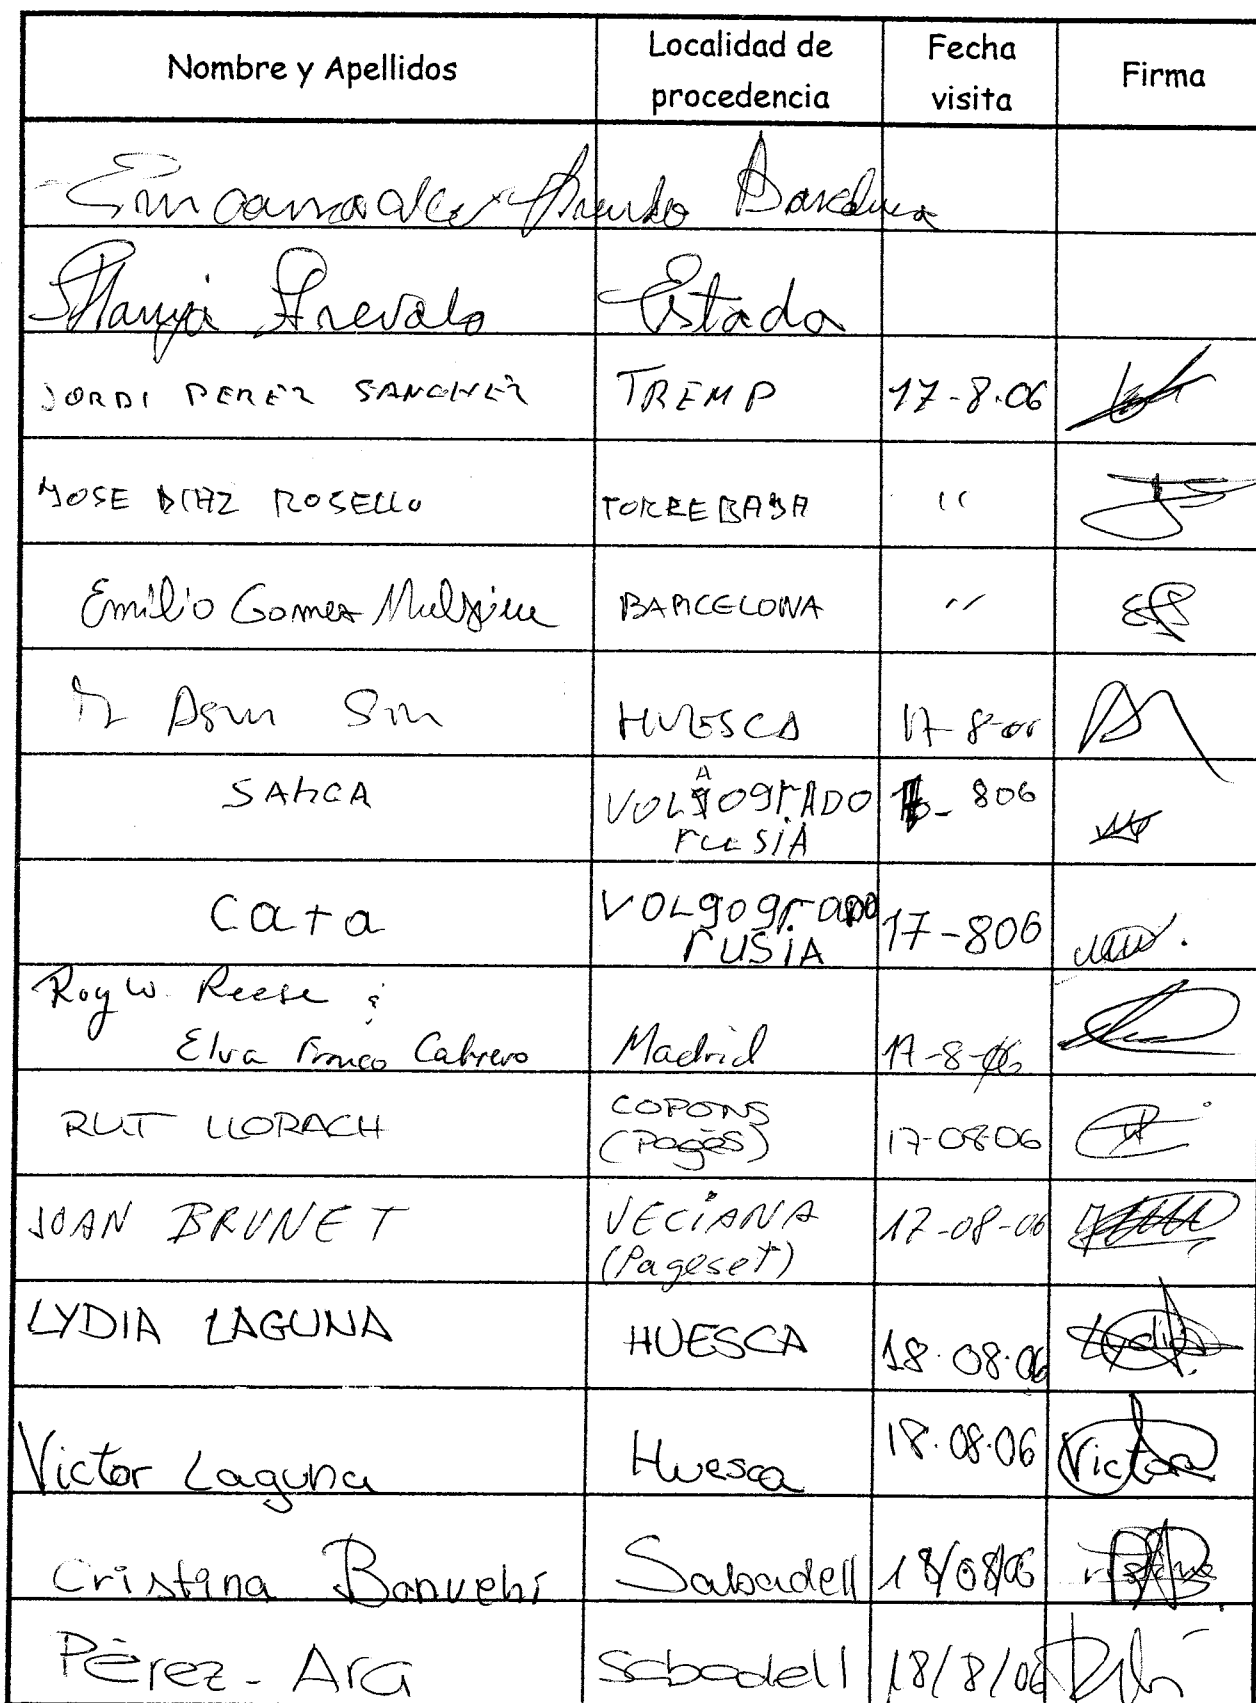 Nombre y Apellidos Localidad de procedencia Fecha visita Firma
Barcelona
Arevalo Estada
JORDI PEREZ SANCHEZ TREMP 17-8.06
JOSE DIAZ ROSELLO TORREBABA "
Emilio Gomez BARCELONA "
HUESCA 17-8-06
VOLGOGrADO rusiA 806
Cata VOLgogrADO rUSiA 17-806
Roy W. Reese &
Elva Franco Cabrero Madrid 17-8-06
RUT LLORACH COPONS (Pagès) 17-08-06
JOAN BRUNET VECIANA (Pageset) 17-08-06
LYDIA LAGUNA HUESCA 18.08.06 Lydia
Victor Laguna Huesca 18.08.06 Victor
Cristina Bonvehí Sabadell 18/08/06
Pèrez-Ara Sabadell 18/8/06